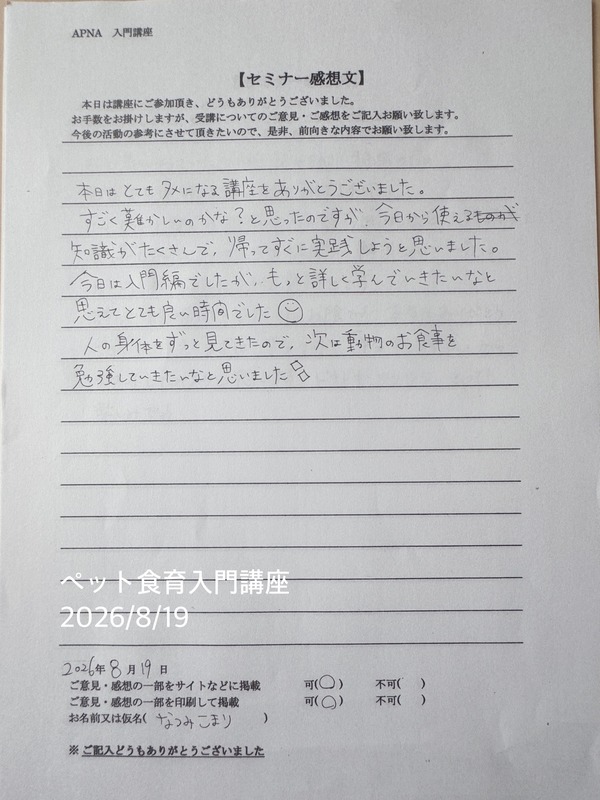 APNA　入門講座
【セミナー感想文】
本日は講座にご参加頂き、どうもありがとうございました。
お手数をお掛けしますが、受講についてのご意見・ご感想をご記入お願い致します。
今後の活動の参考にさせて頂きたいので、是非、前向きな内容でお願い致します。
本日はとてもタメになる講座をありがとうございました。
すごく難かしいのかな？と思ったのですが、今日から使えるものが
知識がたくさんで、帰ってすぐに実践しようと思いました。
今日は入門編でしたが、もっと詳しく学んでいきたいなと
思えてとても良い時間でした
人の身体をずっと見てきたので、次は動物のお食事を
勉強していきたいなと思いました
ペット食育入門講座
2026/8/19
2026年 8月 19日
ご意見・感想の一部をサイトなどに掲載　可(○)　不可(　)
ご意見・感想の一部を印刷して掲載　可(○)　不可(　)
お名前又は仮名(　なつみこまり　)
※ ご記入どうもありがとうございました